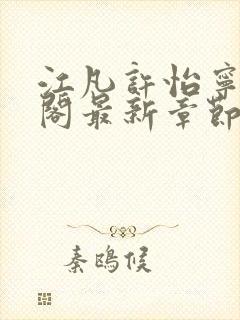 江凡許怡寧
閣最新章節
秦鴎候